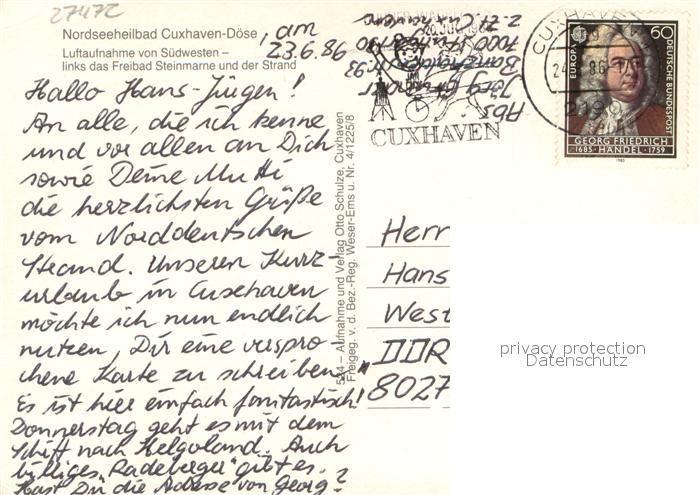 27472
Nordseeheilbad Cuxhaven-Döse, am
23.6.86
Luftaufnahme von Südwesten –
links das Freibad Steinmarne und der Strand
Hallo Hans-Jürgen!
An alle, die ich kenne
und vor allen an Dich
sowie Deine Mutti
die herzlichsten Grüße
vom Norddeutschen
Strand. Unseren Kurz-
urlaub in Cuxhaven
möchte ich nun endlich
nutzen, Dir eine verspro-
chene Karte zu schreiben.
Es ist hier einfach fantastisch!
Donnerstag geht es mit dem
Schiff nach Helgoland. Auch
billiges "Radeberger" gibt es.
Hast Du die Adresse von Georg?
534 – Aufnahme und Verlag Otto Schulze, Cuxhaven
Freigeg. v. d. Bez.-Reg. Weser-Ems u. Nr. 4/1225/8
Abs.
Jörg
93
1000
z. Zt. Cuxhaven
CUXHAVEN
CUXHAVEN
24
86
219
EUROPA
60
DEUTSCHE BUNDESPOST
GEORG FRIEDRICH
1685 · HÄNDEL · 1759
1985
Herr
Hans
West
DDR
8027
privacy protection
Datenschutz